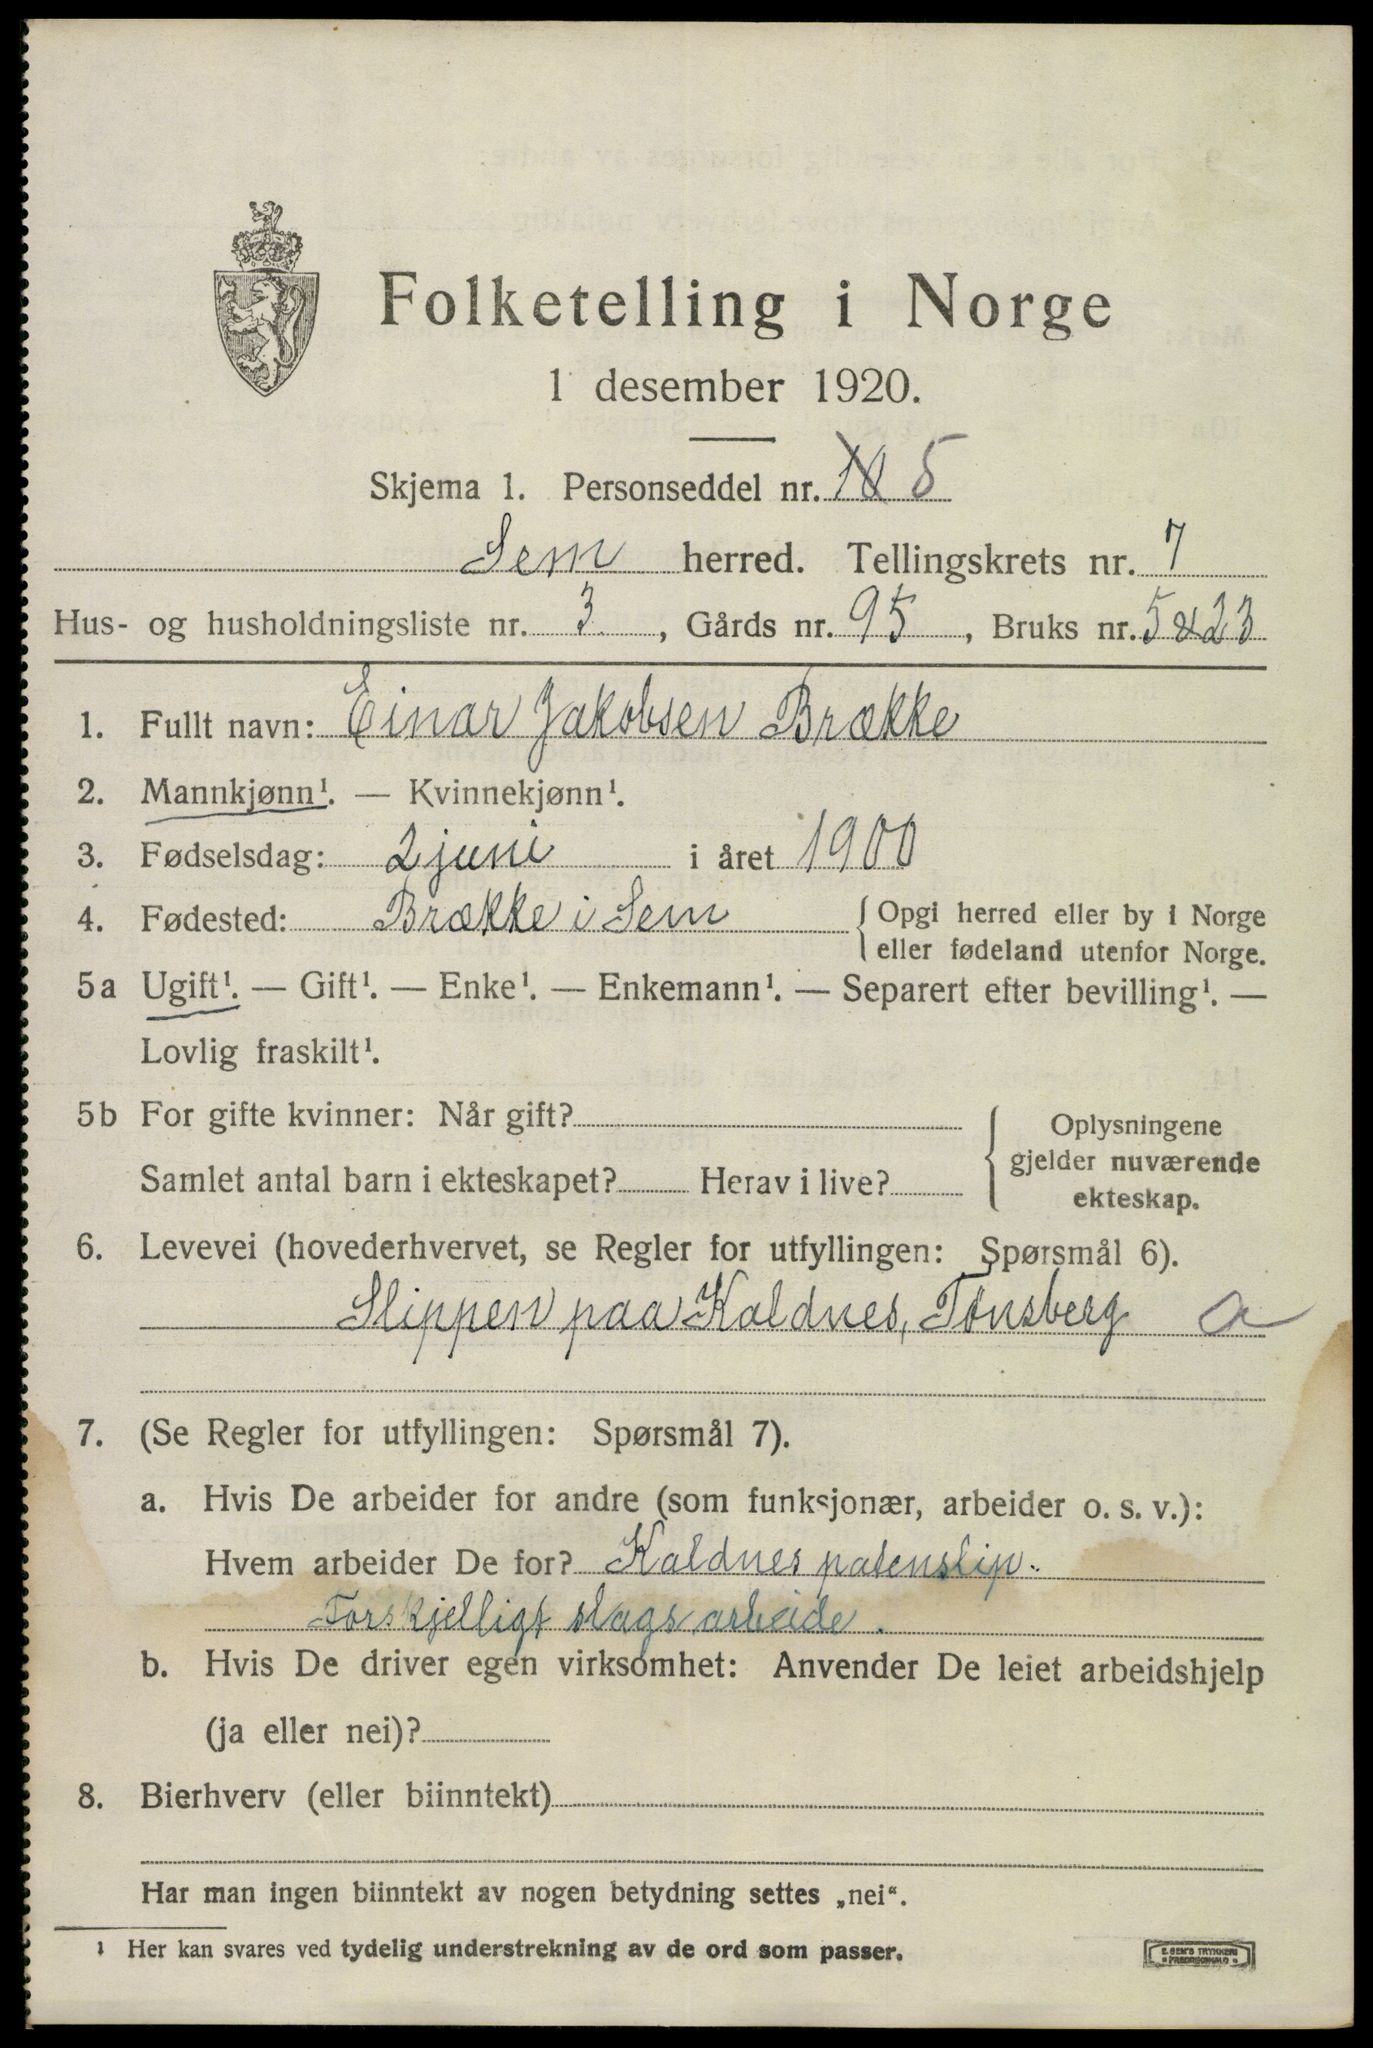 Folketelling i Norge
1 desember 1920.
Skjema 1. Personseddel nr. 10 5
Sem herred. Tellingskrets nr. 7
Hus- og husholdningsliste nr. 3, Gårds nr. 95, Bruks nr. 5 & 23
1. Fullt navn: Einar Jakobsen Brække
2. Mannkjønn¹. — Kvinnekjønn¹.
3. Fødselsdag: 2 juni i året 1900
4. Fødested: Brække i Sem { Opgi herred eller by i Norge
eller fødeland utenfor Norge.
5a Ugift¹. — Gift¹. — Enke¹. — Enkemann¹. — Separert efter bevilling¹. —
Lovlig fraskilt¹.
5b For gifte kvinner: Når gift?
Samlet antal barn i ekteskapet? Herav i live?
Oplysningene
gjelder nuværende
ekteskap.
6. Levevei (hovederhvervet, se Regler for utfyllingen: Spørsmål 6).
Slippen paa Kaldnes, Tønsberg a
7. (Se Regler for utfyllingen: Spørsmål 7).
a. Hvis De arbeider for andre (som funksjonær, arbeider o. s. v.):
Hvem arbeider De for? Kaldnes patenslip.
Forskjelligt slags arbeide.
b. Hvis De driver egen virksomhet: Anvender De leiet arbeidshjelp
(ja eller nei)?
8. Bierhverv (eller biinntekt)
Har man ingen biinntekt av nogen betydning settes „nei“.
¹ Her kan svares ved tydelig understrekning av de ord som passer.
E. SEM'S TRYKKERI
FREDRIKSHALD